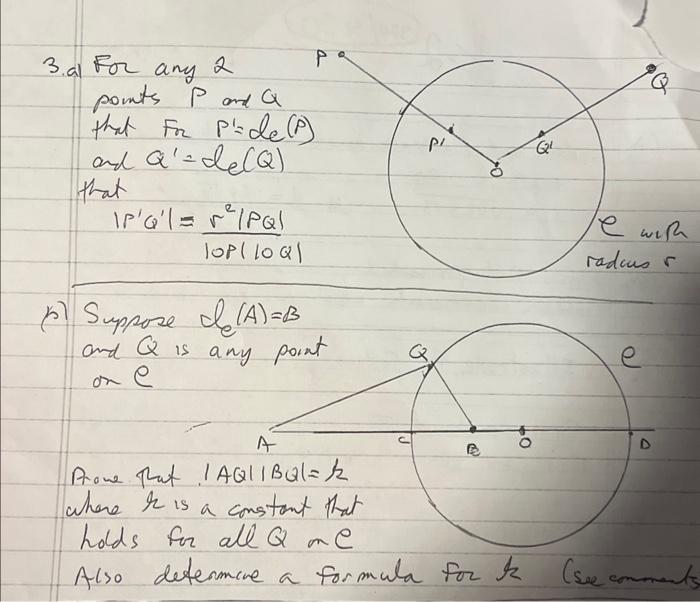 3.a) For any 2
points P and Q
that for P'=𝒥e(P)
and Q'=𝒥e(Q)
that
|P'Q'| = r²|PQ|
|OP| |OQ|
P
Q
P'
Q'
O
e with
radius r
b) Suppose 𝒥e(A)=B
and Q is any point
on e
Q
e
A
C
B
O
D
Prove that |AQ||BQ|=k
where k is a constant that
holds for all Q on e
Also determine a formula for k (see comments